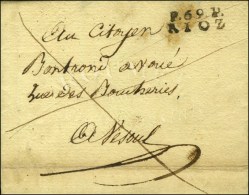 P.69.P.
RIOZ
Au Citoyen
Bontront avoué
Rue des Boucheries,
A Vesoul